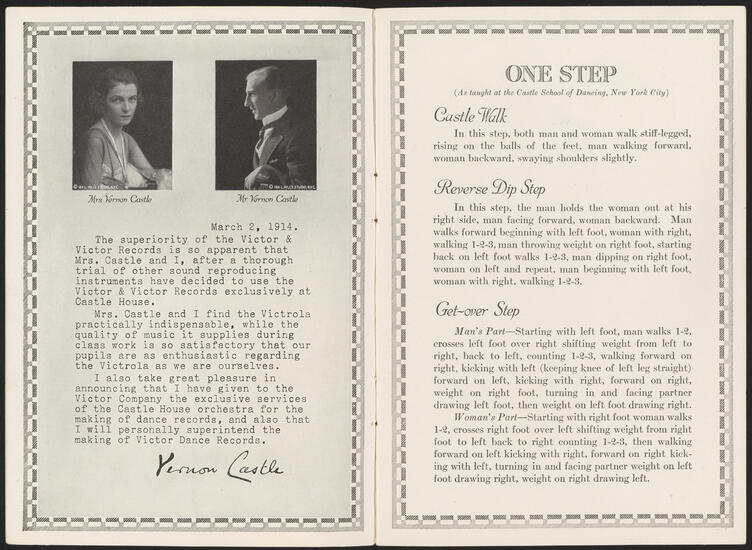 © 1914 L. HILL'S STUDIO, N.Y.C.
Mrs Vernon Castle
Mr. Vernon Castle
March 2, 1914.
The superiority of the Victor &
Victor Records is so apparent that
Mrs. Castle and I, after a thorough
trial of other sound reproducing
instruments have decided to use the
Victor & Victor Records exclusively at
Castle House.
Mrs. Castle and I find the Victrola
practically indispensable, while the
quality of music it supplies during
class work is so satisfactory that our
pupils are as enthusiastic regarding
the Victrola as we are ourselves.
I also take great pleasure in
announcing that I have given to the
Victor Company the exclusive services
of the Castle House orchestra for the
making of dance records, and also that
I will personally superintend the
making of Victor Dance Records.
Vernon Castle
ONE STEP
(As taught at the Castle School of Dancing, New York City)
Castle Walk
In this step, both man and woman walk stiff-legged,
rising on the balls of the feet, man walking forward,
woman backward, swaying shoulders slightly.
Reverse Dip Step
In this step, the man holds the woman out at his
right side, man facing forward, woman backward. Man
walks forward beginning with left foot, woman with right,
walking 1-2-3, man throwing weight on right foot, starting
back on left foot walks 1-2-3, man dipping on right foot,
woman on left and repeat, man beginning with left foot,
woman with right, walking 1-2-3.
Get-over Step
Man's Part—Starting with left foot, man walks 1-2,
crosses left foot over right shifting weight from left to
right, back to left, counting 1-2-3, walking forward on
right, kicking with left (keeping knee of left leg straight)
forward on left, kicking with right, forward on right,
weight on right foot, turning in and facing partner
drawing left foot, then weight on left foot drawing right.
Woman's Part—Starting with right foot woman walks
1-2, crosses right foot over left shifting weight from right
foot to left back to right counting 1-2-3, then walking
forward on left kicking with right, forward on right kick-
ing with left, turning in and facing partner weight on left
foot drawing right, weight on right drawing left.